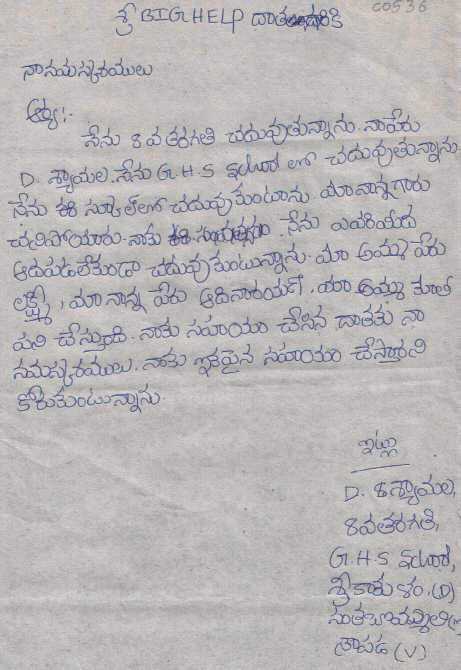 00536
శ్రీ BIG HELP దాతలందరికి
నా నమస్కారములు
ఆర్యా:-
నేను 8 వ తరగతి చదువుతున్నాను. నా పేరు
D. శ్యామల. నేను G.H.S School లో చదువుతున్నాను.
నేను ఈ స్కూల్‌లో చదువుకుంటాను. మా నాన్నగారు
చనిపోయారు. నాకు నేను ఎవరిమీద
ఆదపడలేకుండా చదువుకుంటున్నాను. మా అమ్మ పేరు
లక్ష్మి, మా నాన్న పేరు ఆదినారయణ. మా అమ్మ కూలి
పని చేస్తుంది. నాకు సహాయం చేసిన దాతకు నా
నమస్కరములు. నాకు ఇకపైన సహాయం చేస్తారని
కోరుకుంటున్నాను.
ఇట్లు
D. శ్యామల,
8వ తరగతి,
G.H.S School,
శ్రీకాకుళం. (D)
సంతబొమ్మాలి(M)
(V)